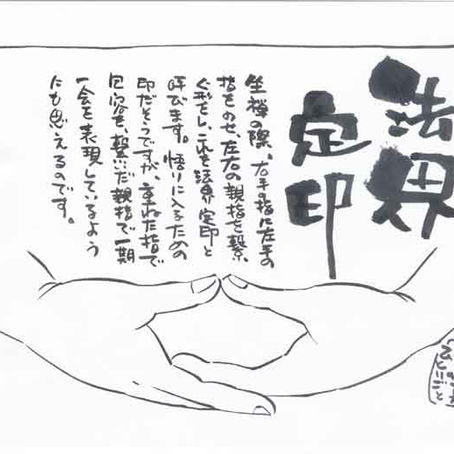 法界
定印
坐禅の際、右手の指に左手の
指をのせ、左右の親指を繋
ぐ形をし、これを法界定印と
呼びます。悟りに入るための
印だそうですが、重ねた指で
包容を、繋いだ親指で一期
一会を表現しているよう
にも思えるのです。
ひとりごと